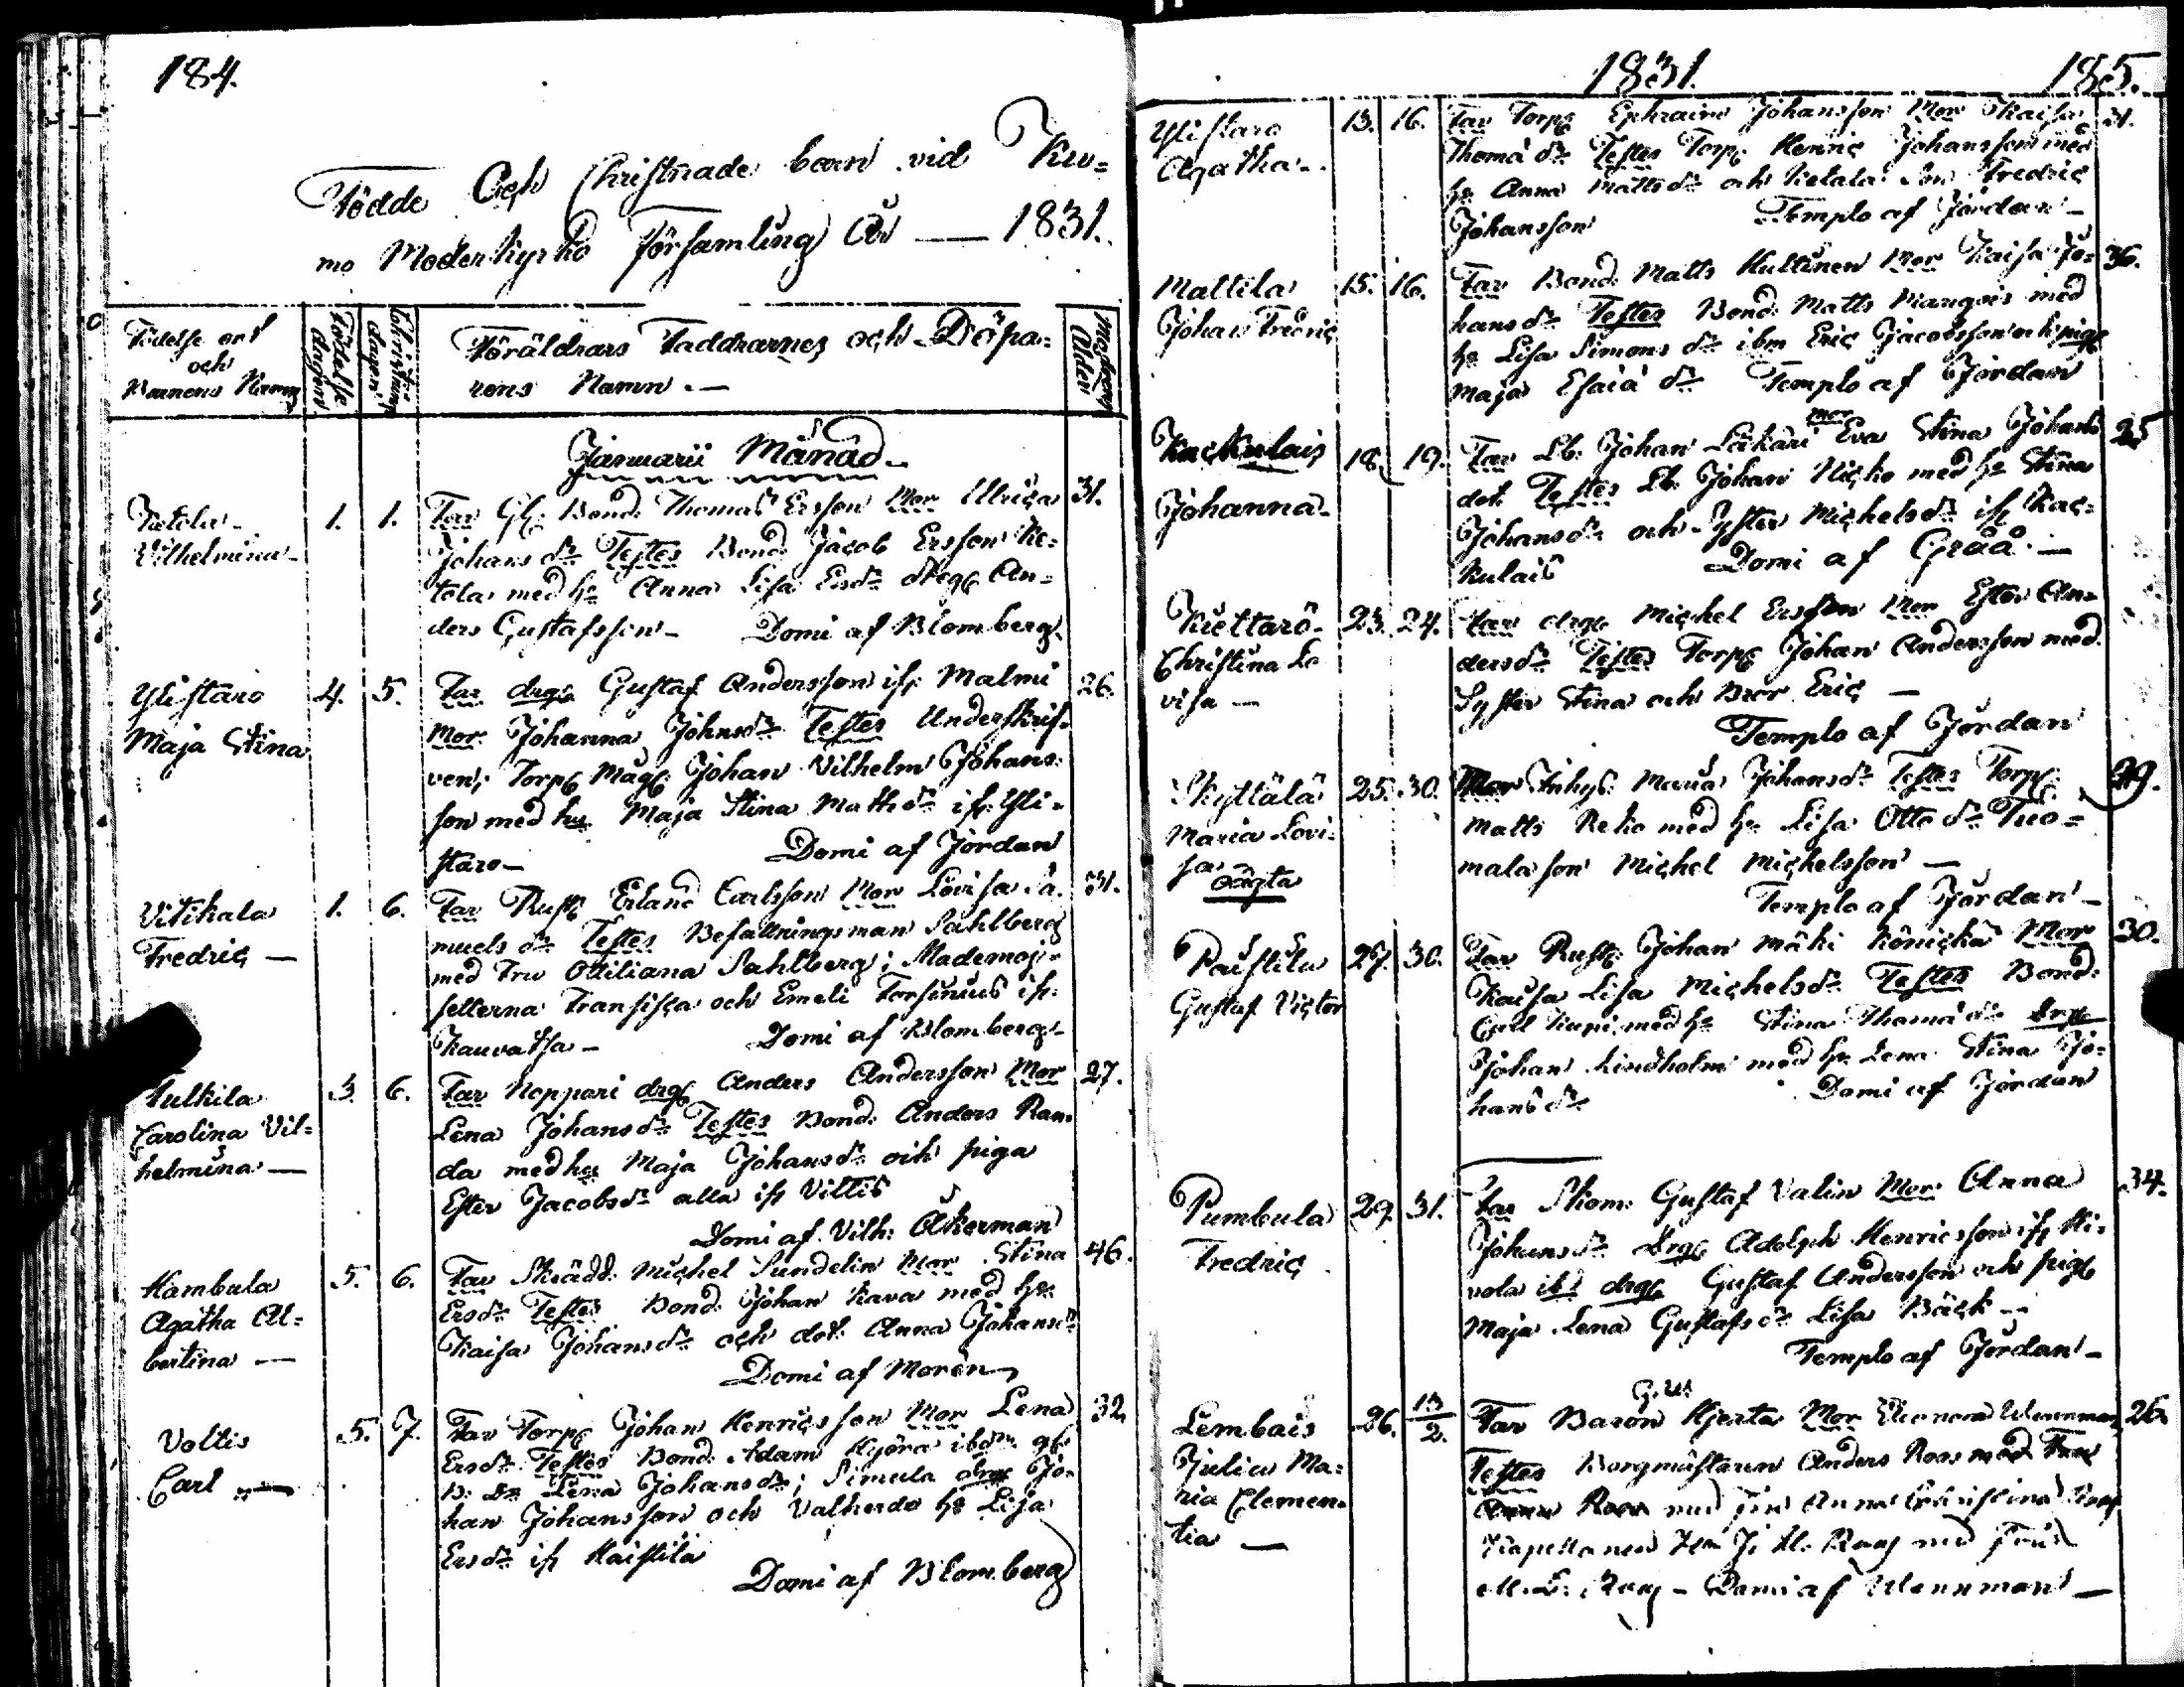 184.
Födde Och Christnade barn vid Ku=
mo Moderkyrko Församling År — 1831.
Födelse ort
och
Barnens Namn
Födelse
dagen
Christnings
dagen
Föräldrars Faddrarnes och Döpa=
rens Namn.—
Modrens
Ålder
Januarii Månad
Ketola
Vilhelmina
1. 1.
Far Gl: Bond. Thomas Ersson Mor Ulrica
31.
Johans dr Testes Bond. Jacob Ersson Ke=
tola med hu Anna Lisa Ersdr drg An=
ders Gustafsson – Domi af Blomberg.
Ylistaro
Maja Stina
4. 5.
Far drg Gustaf Andersson ifr Malmi
26.
Mor Johanna Johnsdr Testes Underskrif=
ven, Torp Måg Johan Vilhelm Johans=
son med hu Maja Stina Mathdr ifr Yli=
staro – Domi af Jordan
Vitikala
Fredric —
1. 6.
Far Rust Erland Carlsson Mor Lovisa Sa=
31.
muels dr Testes Befallningsman Sahlberg
med Fru Ottiliana Sahlberg; Mademoj=
sellerna Fransisca och Emeli Forsenius ifr
Kauvatsa – Domi af Blomberg
Tulkila
Carolina Vil=
helmina —
3. 6.
Far Noppari drg Anders Andersson Mor
27.
Lena Johansdr Testes Bond. Anders Ran=
da med hu Maja Johansdr och piga
Ester Jacobsdr alla ifr Vittis
Domi af Vilh: Åkerman
Kambula
Agatha Al=
bertina —
5. 6.
Far Skrädd. Michel Sundelin Mor Stina
46.
Ersdr Testes Bond. Johan Kava med hu
Kaisa Johansdr och dot. Anna Johansdr
Domi af Morén
Voltis
Carl —
5. 7.
Far Torp Johan Henricsson Mor Lena
32.
Ersdr Testes Bond. Adam Kjöra ibdm gl
B: Dr Lena Johansdr; Simula drg Jo=
han Johansson och Valkerda hu Lisa
Ersdr ifr Kaistila
Domi af Blomberg
1831. 185.
Ylistaro
Agatha.
13. 16.
Far Torp Ephraim Johansson Mor Kaisa
Thomæ dr Testes Torp. Henric Johansson med
hu Anna Mattsdr och Ketala Son Fredric
Johansson Templo af Jordan –
Mattila
Johan Fredric
15. 16.
Far Bond. Matts Kultinen Mor Kaisa Jo=
36.
hansdr Testes Bond. Matts Mangois med
hu Lisa Simonsdr ibm Eric Jacobsson och pig
Maja Esaiæ dr Templo af Jordan
Kackulais
Johanna
18. 19.
Far Lb: Johan Läkari mor Eva Stina Johans
25
dot. Testes Lb. Johan Nicko med hu Stina
Johansdr och Syster Michelsdr ifr Kac=
kulais Domi af Gråå. —
Kiettarö
Christina Lo
visa —
23. 24.
Far drg Michel Ersson Mor Ester An=
dersdr Testes Torp Johan Andersson med
Syster Stina och Bror Eric —
Templo af Jordan
Skyttälä
Maria Lovi=
sa
oägta
25. 30.
Mor Inhys. Maria Johansdr Testes Torp
29.
Matts Reko med hu Lisa Otto dr Tuo=
mala son Michel Michelsson —
Templo af Jordan –
Paistila
Gustaf Victor
27. 30.
Far Rust Johan Mäki Könickä Mor
30.
Kaisa Lisa Michelsdr Testes Bond.
Carl Kupi med hu Stina Thomædr Drg
Johan Lindholm med hu Lena Stina Jo=
hansdr Domi af Jordan
Pumbula
Fredric
29. 31.
Far Skom. Gustaf Valin Mor Anna
34.
Johansdr Drg Adolph Henricsson ifr Hi=
vola drg Gustaf Andersson och pig
Maja Lena Gustafsdr Lisa Bäck —
Templo af Jordan –
Lembais
Julia Ma=
ria Clemen=
tia —
26. 13/2.
Far Baron Hjerta Mor Eleonora Wennman
26.
Testes Borgmästaren Anders Roos
med Fru Anna Christina Roos
Kapellanen med Fru
Domi af Wennman —